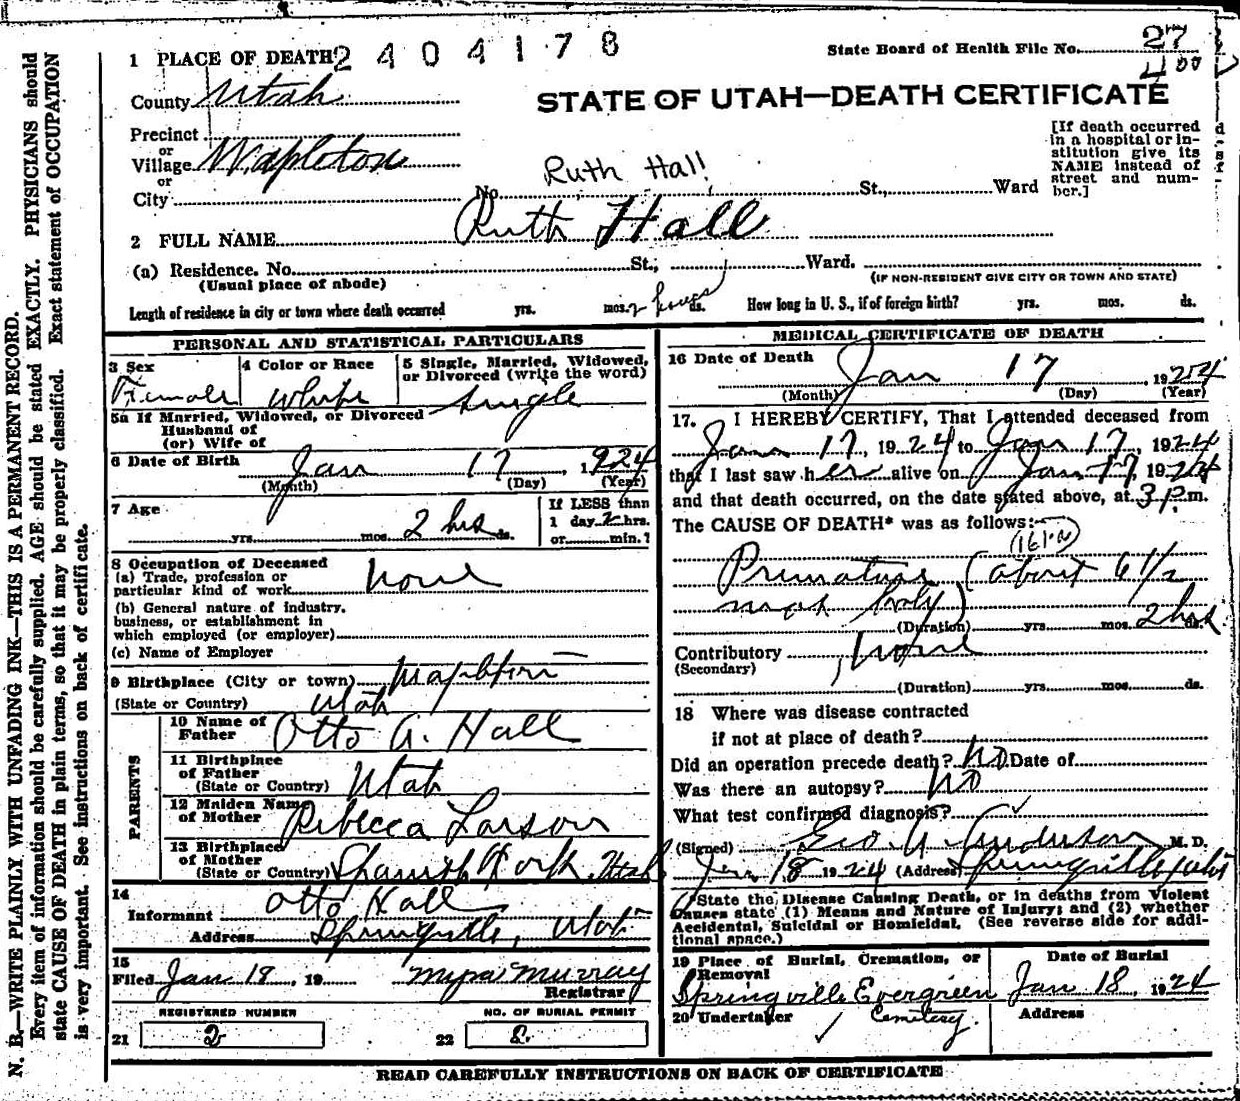 N. B.—WRITE PLAINLY WITH UNFADING INK—THIS IS A PERMANENT RECORD.
Every item of information should be carefully supplied. AGE should be stated EXACTLY. PHYSICIANS should
state CAUSE OF DEATH in plain terms, so that it may be properly classified. Exact statement of OCCUPATION
is very important. See instructions on back of certificate.
1 PLACE OF DEATH 2 4 0 4 1 7 8
State Board of Health File No. 27
400
County Utah
STATE OF UTAH—DEATH CERTIFICATE
Precinct
or
Village Mapleton
or
City
[If death occurred
in a hospital or in-
stitution give its
NAME instead of
street and num-
ber.]
Ruth Hall
No. St., Ward
2 FULL NAME Ruth Hall
(a) Residence. No. St.; Ward.
(Usual place of abode)
(IF NON-RESIDENT GIVE CITY OR TOWN AND STATE)
Length of residence in city or town where death occurred yrs. mos. 2 hours ds. How long in U. S., if of foreign birth? yrs. mos. ds.
PERSONAL AND STATISTICAL PARTICULARS
3 Sex
Female
4 Color or Race
White
5 Single, Married, Widowed,
or Divorced (write the word)
Single
5a If Married, Widowed, or Divorced
Husband of
(or) Wife of
6 Date of Birth Jan 17, 1924
(Month) (Day) (Year)
7 Age
yrs. mos. 2 hrs ds.
If LESS than
1 day 2 hrs.
or min.?
8 Occupation of Deceased
(a) Trade, profession or
particular kind of work None
(b) General nature of industry,
business, or establishment in
which employed (or employer)
(c) Name of Employer
9 Birthplace (City or town) Mapleton
(State or Country) Utah
PARENTS
10 Name of
Father Otto A. Hall
11 Birthplace
of Father
(State or Country) Utah
12 Maiden Name
of Mother Rebecca Larson
13 Birthplace
of Mother
(State or Country) Spanish Fork, Utah
14
Informant Otto Hall
Address Springville, Utah
15
Filed Jan 18, 19 Myra Murray
Registrar
REGISTERED NUMBER
21 2
NO. OF BURIAL PERMIT
22
MEDICAL CERTIFICATE OF DEATH
16 Date of Death Jan 17, 1924
(Month) (Day) (Year)
17. I HEREBY CERTIFY, That I attended deceased from
Jan 17, 1924 to Jan 17, 1924
that I last saw her alive on Jan 17, 1924
and that death occurred, on the date stated above, at 3 P. m.
The CAUSE OF DEATH* was as follows:
Premature (about 6 1/2
baby)
(Duration) yrs. mos. 2 hrs ds.
Contributory None
(Secondary)
(Duration) yrs. mos. ds.
18 Where was disease contracted
if not at place of death?
Did an operation precede death? No Date of
Was there an autopsy? No
What test confirmed diagnosis?
(Signed) Geo. A. Anderson M. D.
Jan 18 1924 (Address) Springville Utah
*State the Disease Causing Death, or in deaths from Violent
Causes state (1) Means and Nature of Injury; and (2) whether
Accidental, Suicidal or Homicidal. (See reverse side for addi-
tional space.)
19 Place of Burial, Cremation, or
Removal
Springville Evergreen
Cemetery.
Date of Burial
Jan 18, 1924
20 Undertaker
Address
READ CAREFULLY INSTRUCTIONS ON BACK OF CERTIFICATE